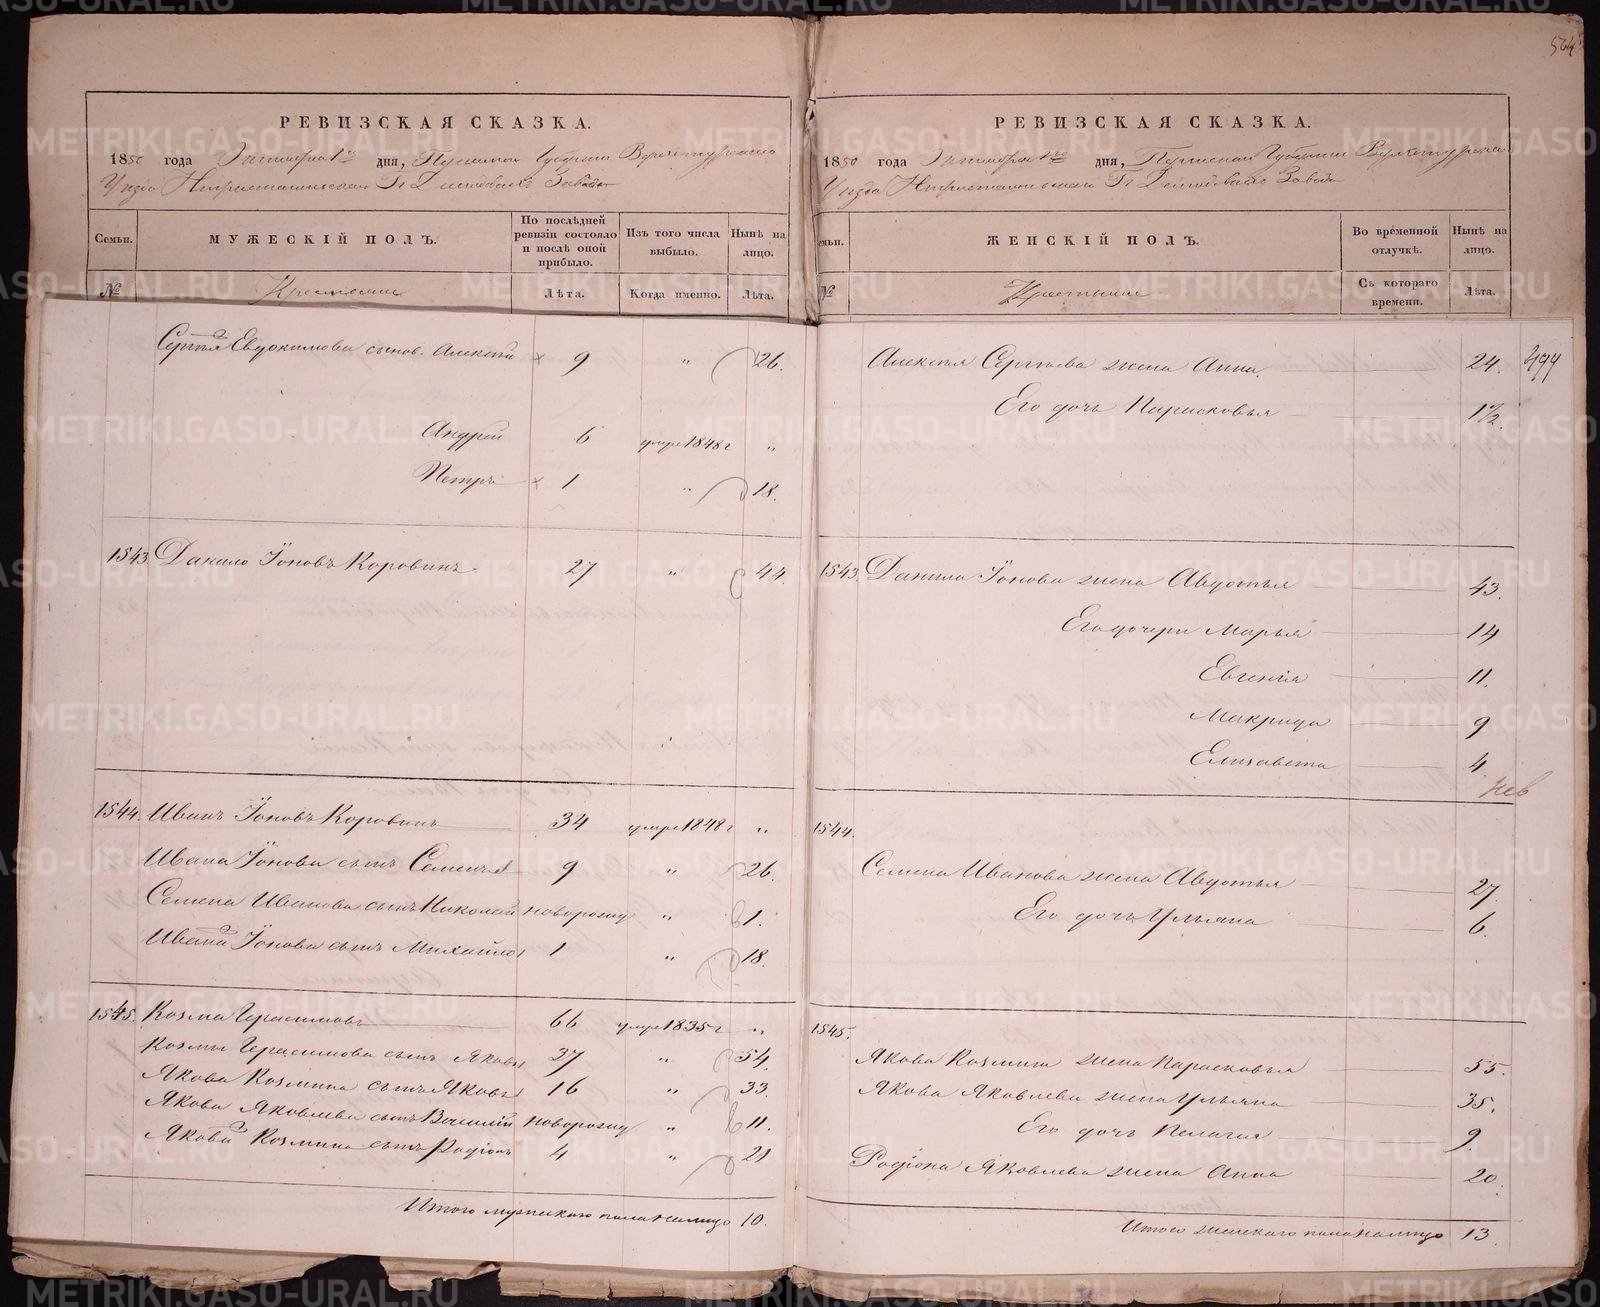 564
РЕВИЗСКАЯ СКАЗКА.
1850 года Октября 1го дня, Пермской Губернии Верхотурскаго
Уезда Гг Демидовыхъ Завода
Семьи.
МУЖЕСКІЙ ПОЛЪ.
По послѣдней ревизіи состояло и послѣ оной прибыло.
Изъ того числа выбыло.
Нынѣ на лицо.
№
Крестьяне
Лѣта.
Когда именно.
Лѣта.
Сергѣя Евдокимова сынов. Алексѣй 9 " 26.
Андрей 6 умре 1848 г "
Петръ 1 " 18.
1543. Данило Іоновъ Коровинъ 27 " 44.
1544. Иванъ Іоновъ Коровинъ 34 умре 1848 г "
Ивана Іонова сынъ Семенъ 9 " 26.
Семена Иванова сынъ Николай новорожд " 1.
Ивана Іонова сынъ Михайло 1 " 18.
1545. Козма Герасимовъ 66 умре 1835 г "
Козмы Герасимова сынъ Яковъ 37 " 54.
Якова Козмина сынъ Яковъ 16 " 33.
Якова Яковлева сынъ Василій новорожд " 11.
Якова Козмина сынъ Родіонъ 4 " 21
Итого мужескаго пола налицо 10.
РЕВИЗСКАЯ СКАЗКА.
1850 года Октября 1го дня, Пермской Губернии Верхотурскаго
Уезда Гг Демидовыхъ Завода
Семьи.
ЖЕНСКІЙ ПОЛЪ.
Во временной отлучкѣ.
Нынѣ на лицо.
№
Крестьяне
Съ котораго времени.
Лѣта.
Алексѣя Сергѣева жена Анна. 24.
Его дочь Парасковья 1½.
1543. Данила Іонова жена Авдотья 43.
Его дочери Марья 14
Евгенія 11.
Макрида 9
Елизавета 4
1544.
Семена Иванова жена Авдотья 27.
Его дочь Ульяна 6.
1545.
Якова Козмина жена Парасковья 55.
Якова Яковлева жена Ульяна 35.
Его дочь Пелагия 9.
Родіона Яковлева жена Анна 20.
Итого женскаго пола налицо 13.
METRIKI.GASO-URAL.RU